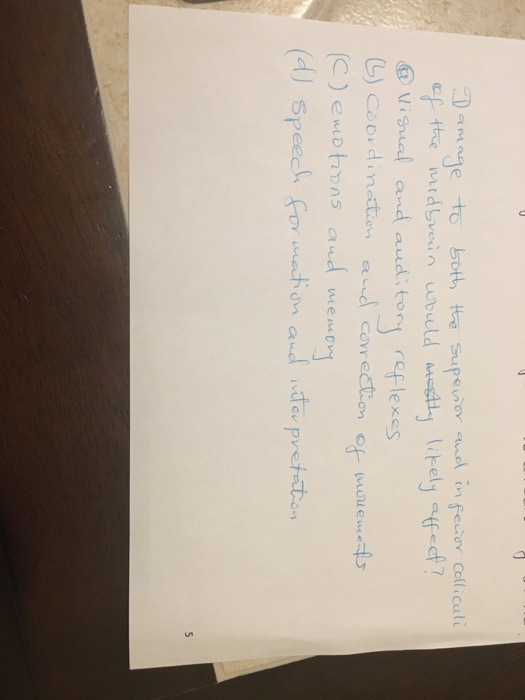 Damage to both the superior and inferior colliculi
of the midbrain would likely affect?
(a) Visual and auditory reflexes
(b) Coordination and correction of movements
(c) emotions and memory
(d) speech formation and interpretation
5